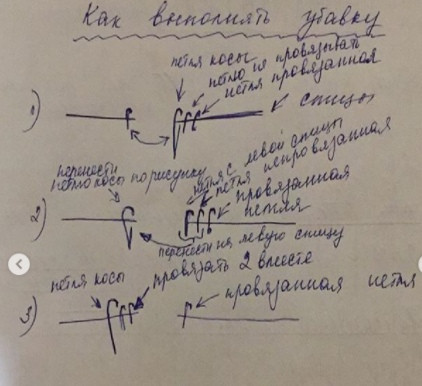 Как выполнять убавку
петля косы
петлю не провязывать
петля провязанная
1) спицы
перенести
петлю косы по рисунку
петля с левой спицы
петля непровязанная
провязанная
петля
2)
перенести на левую спицу
петля косы
провязать 2 вместе
провязанная петля
3)